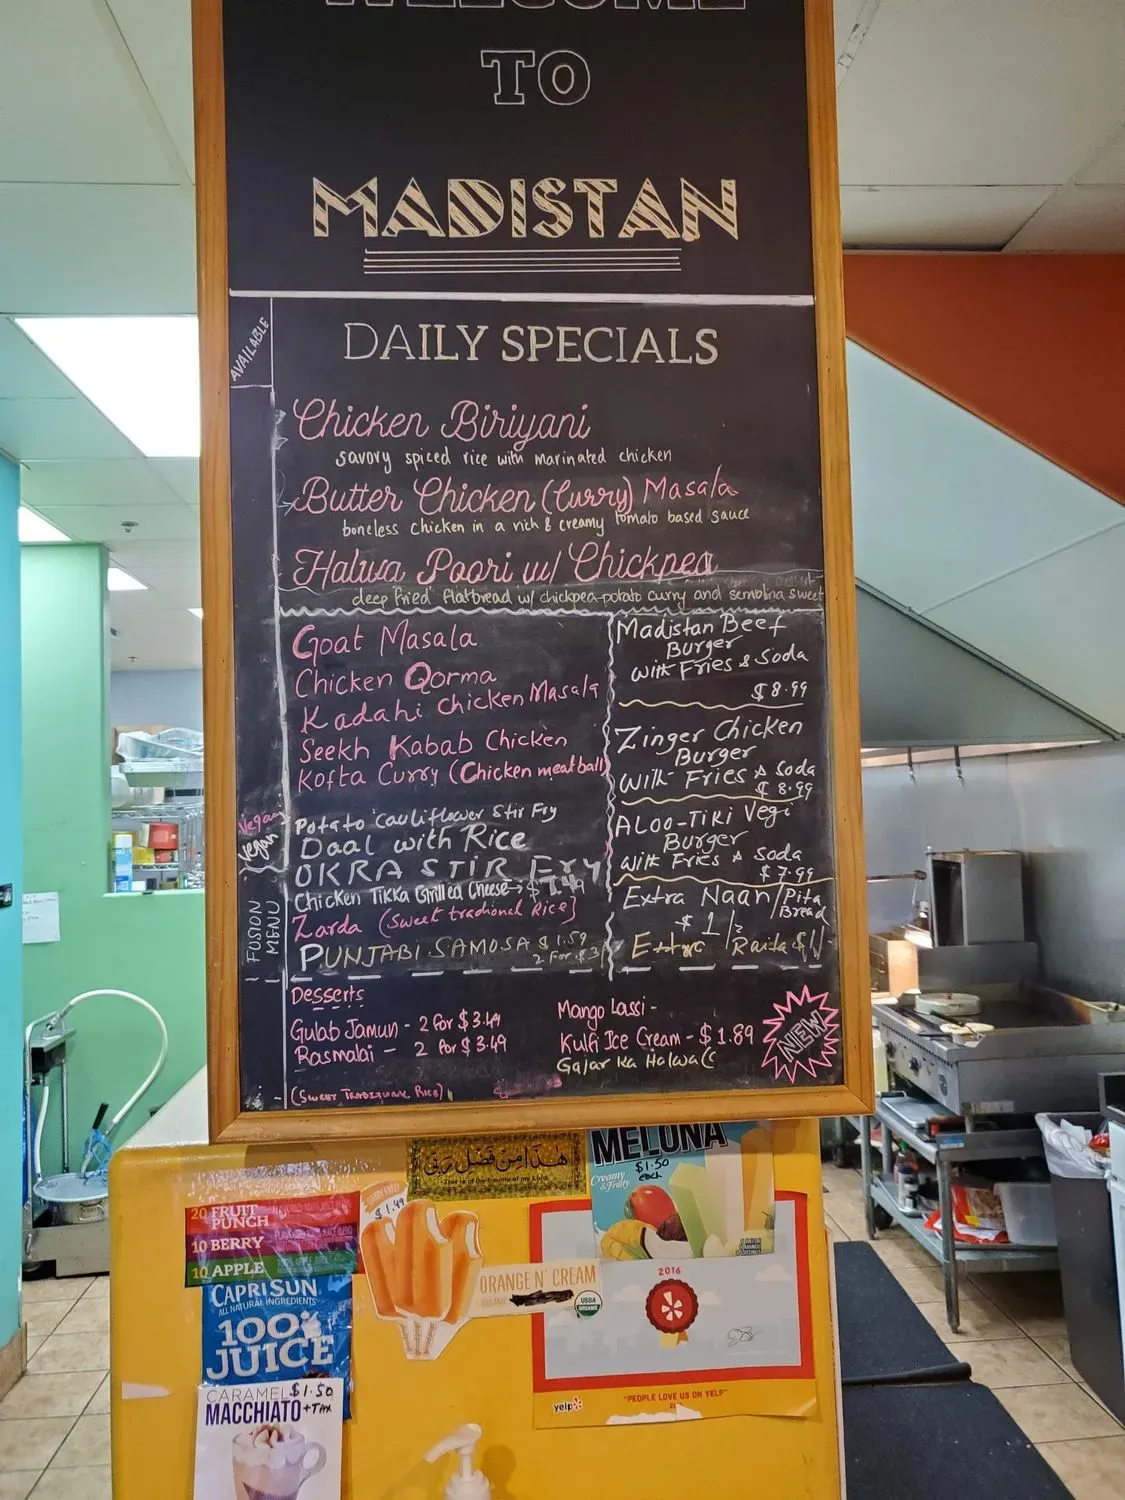 WELCOME
TO
MADISTAN
AVAILABLE
DAILY SPECIALS
Chicken Biriyani
savory spiced rice with marinated chicken
Butter Chicken (Curry) Masala
boneless chicken in a rich & creamy tomato based sauce
Halwa Poori w/ Chickpea
deep fried flatbread w/ chickpea-potato curry and semolina sweet
Goat Masala
Chicken Qorma
Kadahi Chicken Masala
Seekh Kabab Chicken
Kofta Curry (Chicken meatball)
Vegan
Vegan
Potato cauliflower Stir Fry
Daal with Rice
OKRA STIR Fry
FUSION
MENU
Chicken Tikka Grilled Cheese → $7.49
Zarda (Sweet tradional Rice)
PUNJABI SAMOSA $1.59
2 For $3
Madistan Beef
Burger
with Fries & Soda
$8.99
Zinger Chicken
Burger
with Fries & Soda
$8.99
ALOO-TIKI Vegi
Burger
with Fries & Soda
$7.99
Extra Naan/Pita
Bread
$1/2
Extra Raita $1/-
Desserts
Gulab Jamun - 2 for $3.49
Rasmalai - 2 for $3.49
(SWEET TRADITIONAL RICE)
Mango Lassi -
Kulfi Ice Cream - $1.89
Gajar Ka Halwa
NEW
هذا من فضل ربي
This is of the bounty of my Lord
MELONA
$1.50
each
Creamy
& Fruity
20 FRUIT
PUNCH
10 BERRY
10 APPLE
CAPRISUN
ALL NATURAL INGREDIENTS
100%
JUICE
CARAMEL $1.50
MACCHIATO + TAX
$1.49
ORANGE N' CREAM
ORGANIC
USDA
ORGANIC
2016
yelp
"PEOPLE LOVE US ON YELP"